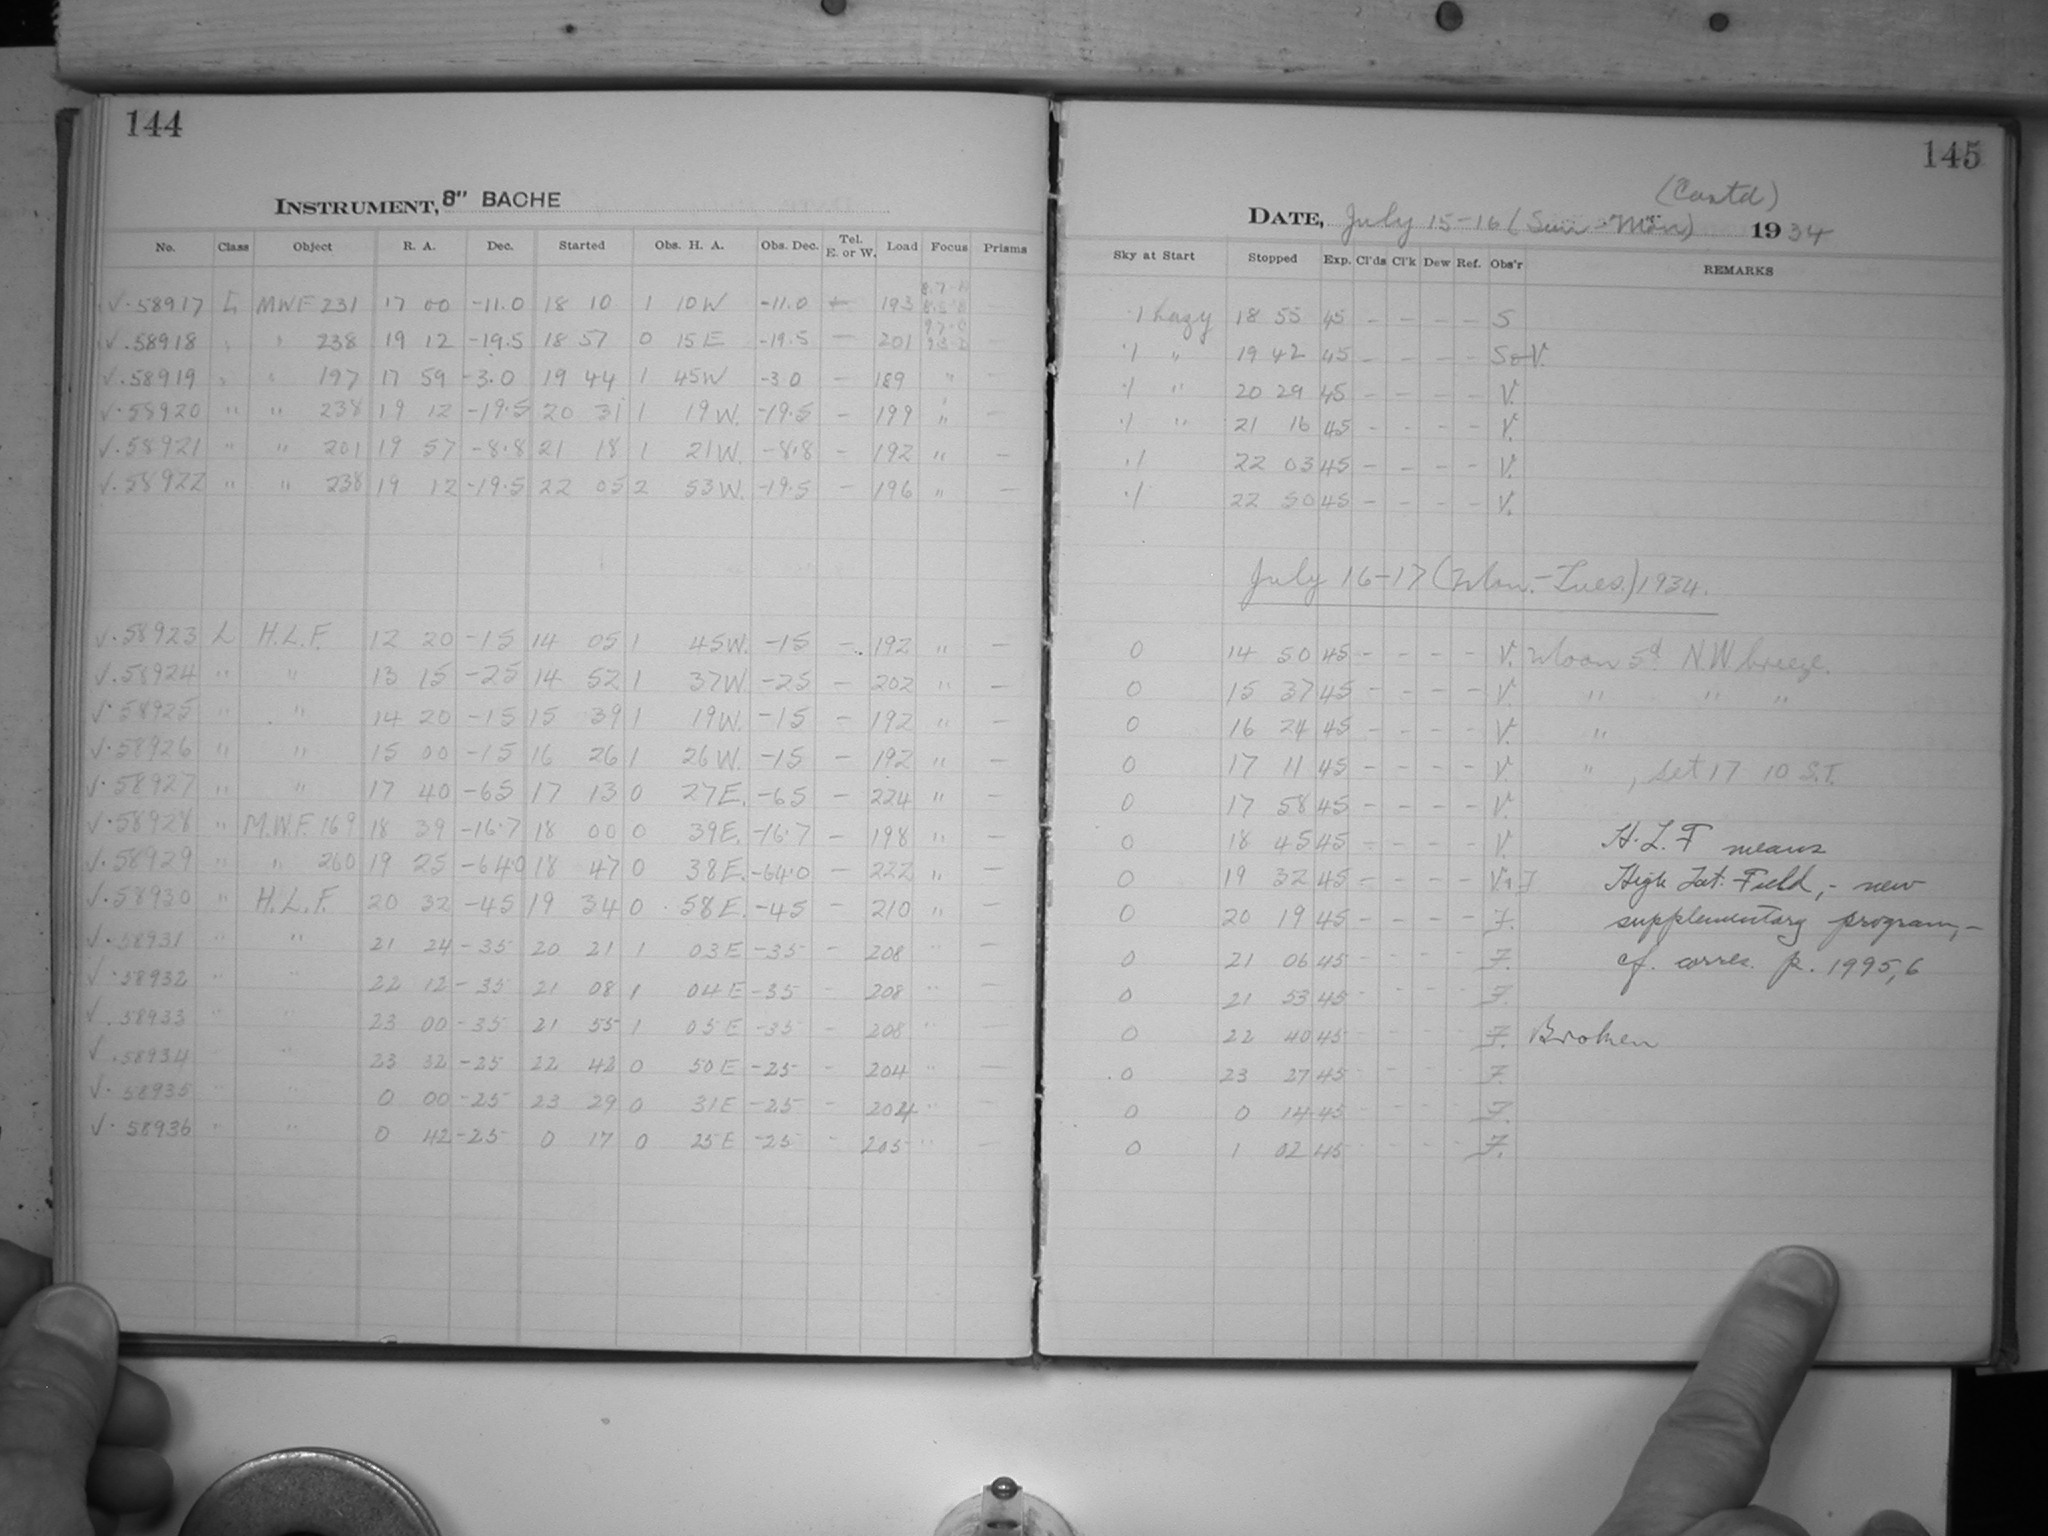 144
INSTRUMENT, 8" BACHE
No. Class Object R. A. Dec. Started Obs. H. A. Obs. Dec. Tel. E. or W. Load Focus Prisms
√.58917 L MWF 231 17 00 -11.0 18 10 1 10W -11.0 193
√.58918 " " 238 19 12 -19.5 18 57 0 15E -19.5 — 201 —
√.58919 " " 197 17 59 -3.0 19 44 1 45W -3 0 — 189 " —
√.58920 " " 238 19 12 -19.5 20 31 1 19W. -19.5 — 199 " —
√.58921 " " 201 19 57 -8.8 21 18 1 21W. -8.8 — 192 " —
√.58922 " " 238 19 12 -19.5 22 05 2 53W. -19.5 — 196 " —
√.58923 L H.L.F. 12 20 -15 14 05 1 45W. -15 — 192 " —
√.58924 " " 13 15 -25 14 52 1 37W -25 — 202 " —
√.58925 " " 14 20 -15 15 39 1 19W. -15 — 192 " —
√.58926 " " 15 00 -15 16 26 1 26W. -15 — 192 " —
√.58927 " " 17 40 -65 17 13 0 27E. -65 — 224 " —
√.58928 " M.W.F. 169 18 39 -16.7 18 00 0 39E. -16.7 — 198 " —
√.58929 " " 260 19 25 -64.0 18 47 0 38E. -64.0 — 222 " —
√.58930 " H.L.F. 20 32 -45 19 34 0 58E. -45 — 210 " —
√.58931 " " 21 24 -35 20 21 1 03E -35 — 208 " —
√.58932 " " 22 12 -35 21 08 1 04E -35 — 208 " —
√.58933 " " 23 00 -35 21 55 1 05E -35 — 208 " —
√.58934 " " 23 32 -25 22 42 0 50E -25 — 204 " —
√.58935 " " 0 00 -25 23 29 0 31E -25 — 204 " —
√.58936 " " 0 42 -25 0 17 0 25E -25 — 205 " —
145
(Contd)
DATE, July 15-16 (Sun-Mon) 1934
Sky at Start Stopped Exp. Cl'ds Cl'k Dew Ref. Obs'r REMARKS
.1 hazy 18 55 45 — — — — S
.1 " 19 42 45 — — — — S & V.
.1 " 20 29 45 — — — — V.
.1 " 21 16 45 — — — — V.
.1 22 03 45 — — — — V.
.1 22 50 45 — — — — V.
July 16-17 (Mon.-Tues.) 1934.
0 14 50 45 — — — — V. Moon 5d N.W. breeze.
0 15 37 45 — — — — V. " " "
0 16 24 45 — — — — V. "
0 17 11 45 — — — — V. " , set 17 10 S.T.
0 17 58 45 — — — — V.
0 18 45 45 — — — — V. H.L.F means
0 19 32 45 — — — — V & F High Lat. Field, - new
0 20 19 45 — — — — F. supplementary program, -
0 21 06 45 — — — — F. cf. corres. p. 1995,6
0 21 53 45 — — — — F.
0 22 40 45 — — — — F. Broken
0 23 27 45 — — — — F.
0 0 14 45 — — — — F.
0 1 02 45 — — — — F.